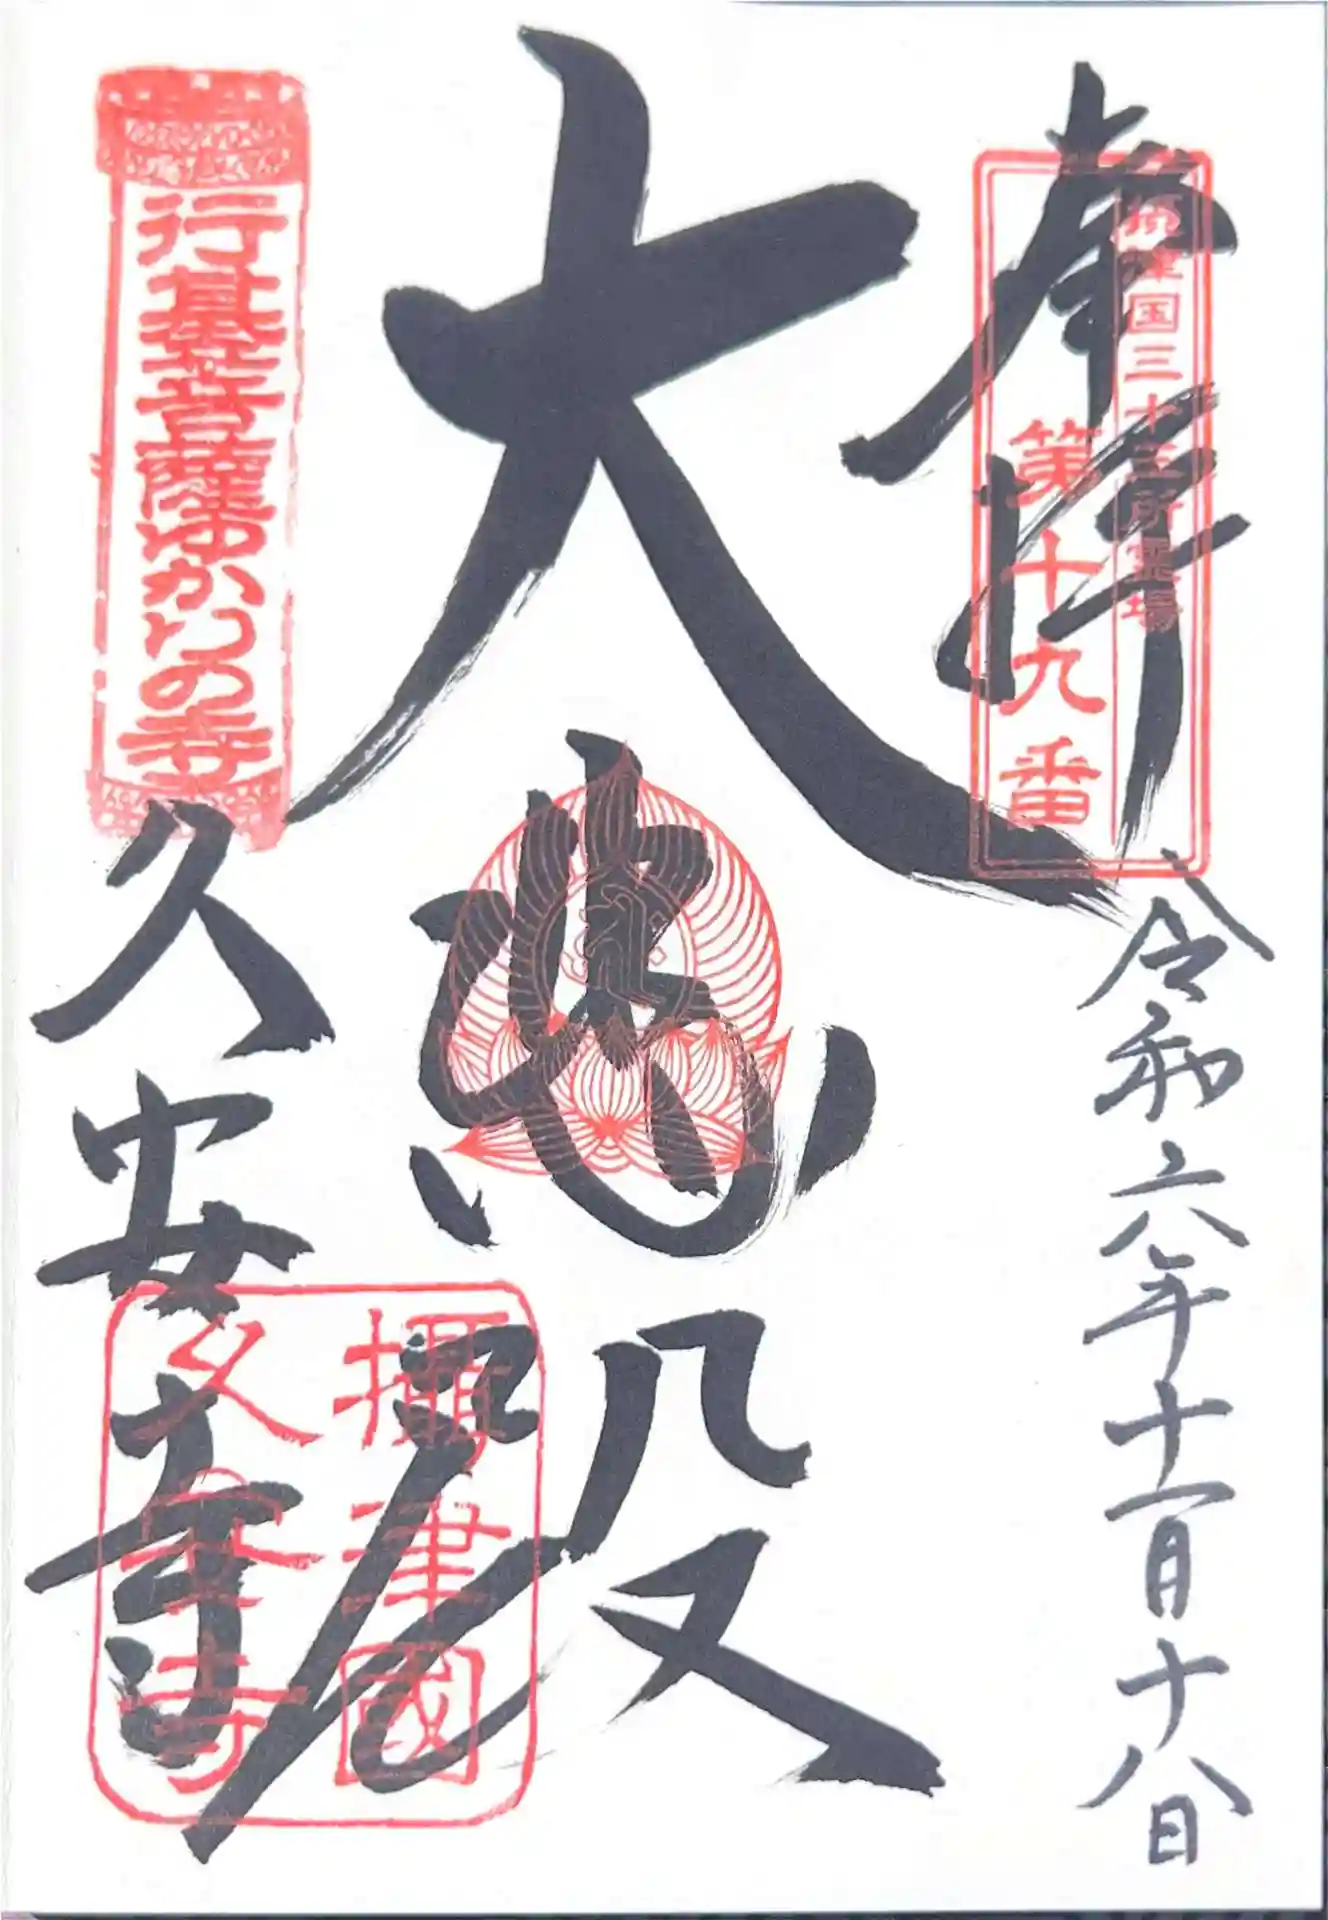 奉拝
摂津国三十三所霊場
第十九番
令和六年十一月十八日
大悲殿
行基菩薩ゆかりの寺
久安寺
攝津國
久安寺